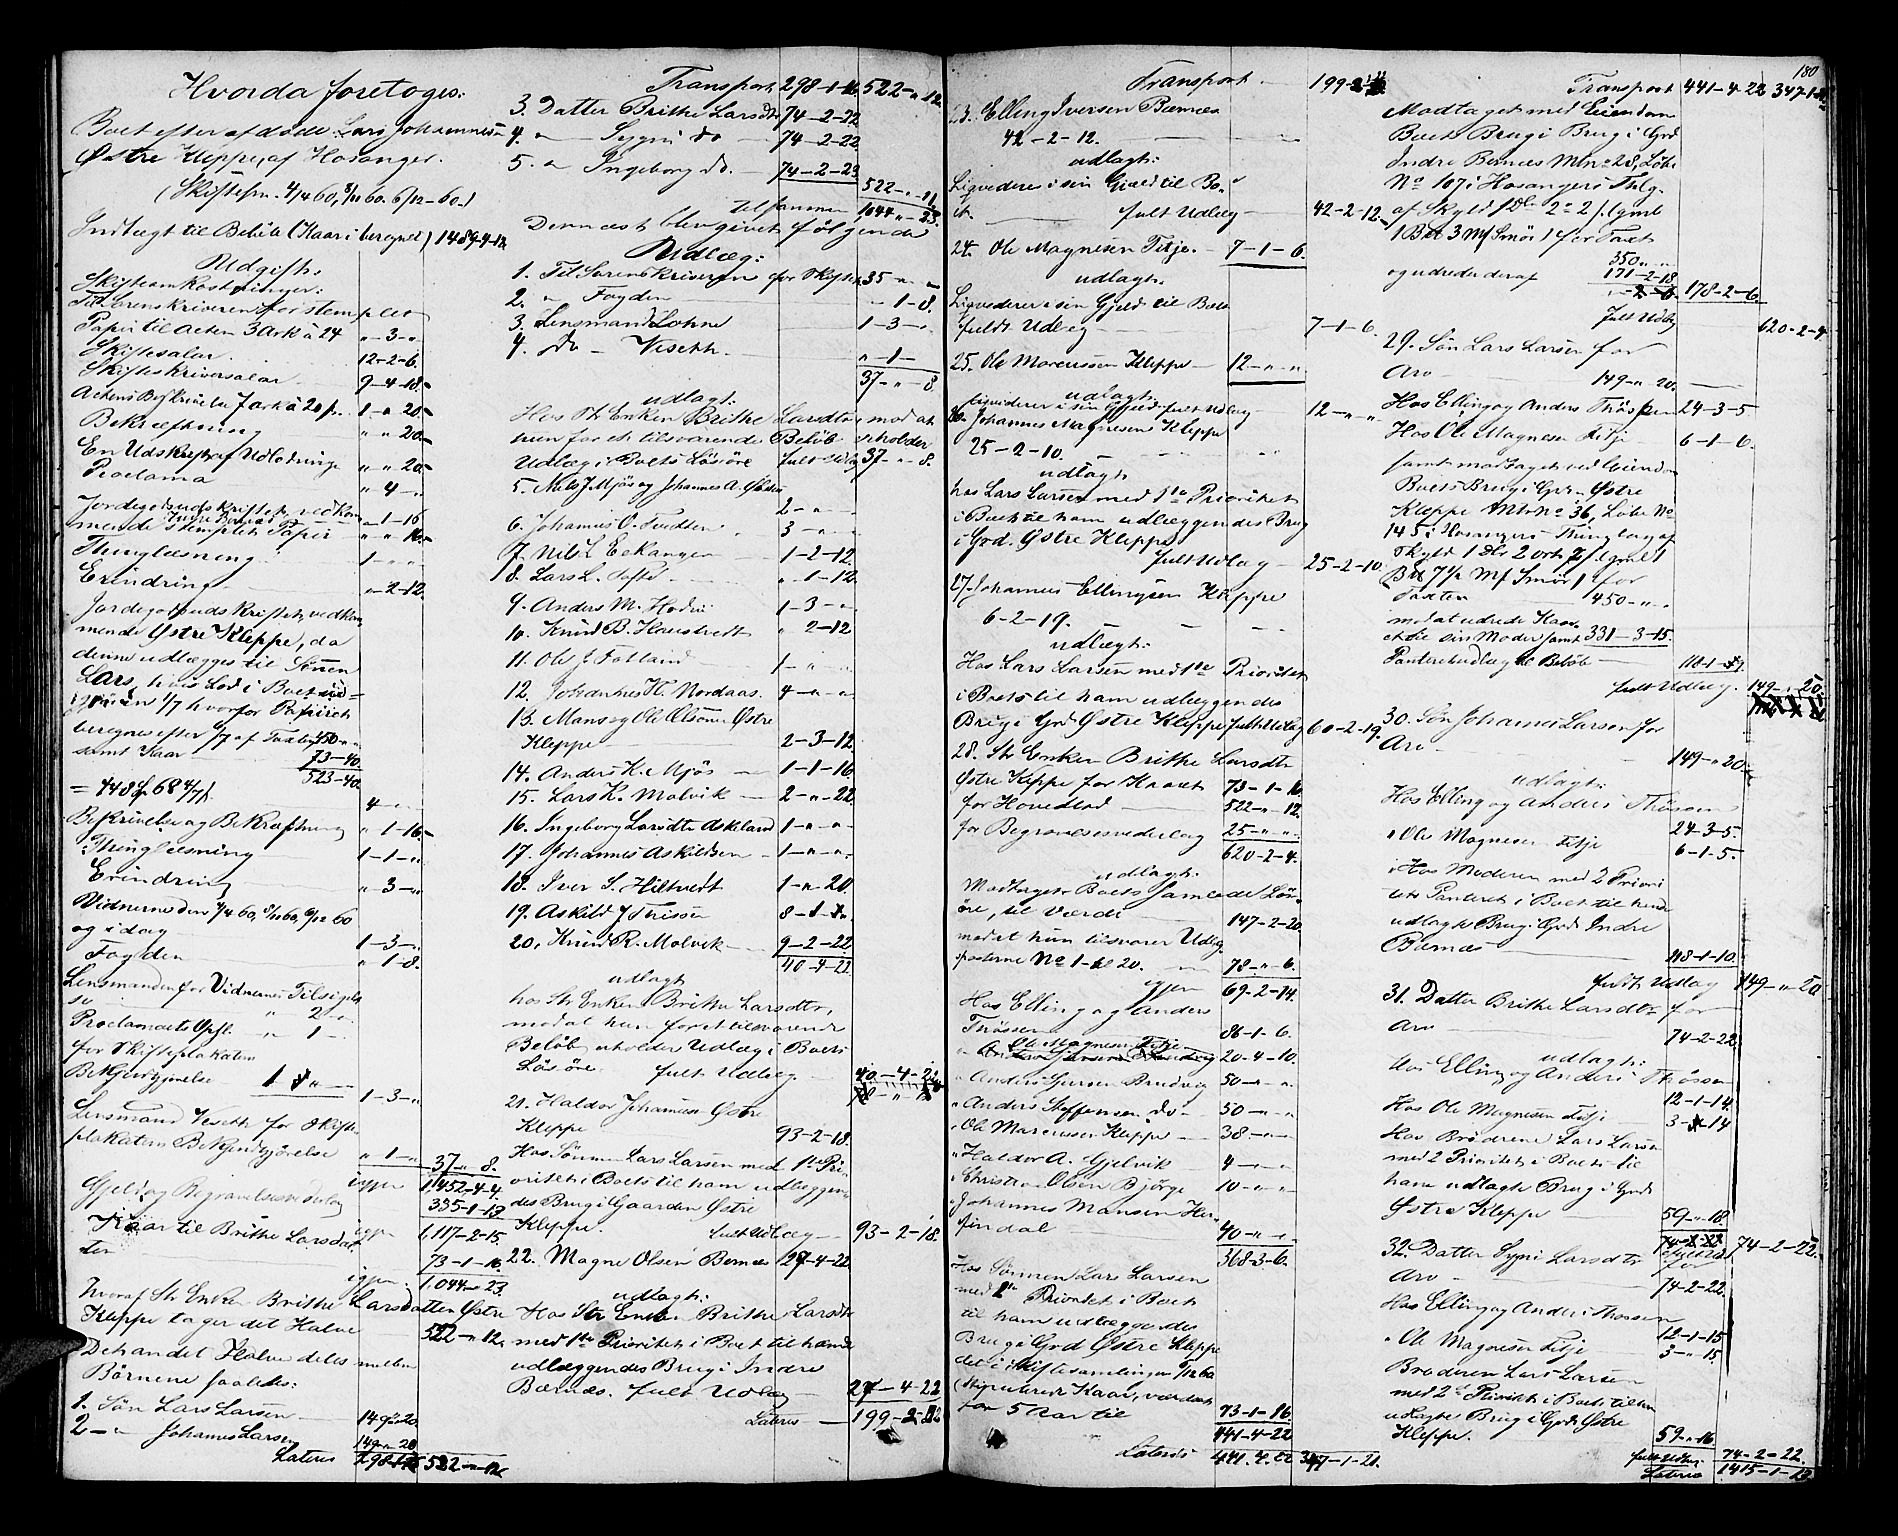 Hvorda foretoges:
Boet efter afdøde Lars Johannesen
Østre Kleppe, af Hosanger.
(Skiftespr. 4/4 60, 8/11 60. 6/12-60.)
Indlægt til Beløb (Kaar iberegnet) 1489-4-12
Udgift:
Skifteomkostninger:
Til Sorenskriveren for stemplet
Papir til Acten 3 Ark à 24 "-3-"
Skiftesalær 12-2-6.
Skifteskriversalær 9-4-18.
Actens Beskrivelse 7 ark à 20 s. 1-"-20-
Bekræftning " " 20.
En Udskrift af Udlodninge " " 20-
Proclama " 4-"
Jordegodsudskriftet, vedkom "-1-16
mende Indre Bernæs stemplet Papir " " 16.
Thinglæsning 1-"-"
Erindring "-2-12.
Jordegodsudskriftet, vedkom
mende Østre Kleppe, da
denne udlægges til Sønnen
Lars, hvis Lod i Boet
1/7 hvorfor Papiret
beregnes efter 6/7 af Taxten 450-"-"
samt Kaar 73-40.
523-40.
= 448 68 4/7 4-"-"
Beskrivelse og Bekræftning " 1-16-
Thinglæsning 1-1-"
Erindring " 3-"
Vidnerne den 4/4 60, 8/11 60, 6/12 60
og idag 1-3-"
Fogden " 1-8.
Lensmanden for Vidnernes Tilsigel
se " 2-"
Proclamaets Opsl. " 1-
for Skifteplakaten
Bekjendtgjørelse 1 "
1-3-"
Lensmand Veseth for Skifte
plakatens Bekjendtgjørelse " 1-" 37-"-8.
igjen 1,452-4-4.
Gjeld og Begravelsesvederlag 335-1-13
igjen 1,117-2-15.
Kaar til Brithe Larsdat
ter 73-1-16
igjen 1,044-"-23.
hvoraf Str. Enken Brithe Larsdatter Østre
Kleppe tager det Halve 522-"-12,
Det andet Halve deles mellem
Børnene saaledes:
1. Søn Lars Larsen 149-"-20.
2- " Johannes Larsen 149-"-20
Lateris 298-1-16 522-"-12
Transport 298-1-16 522-"-12.
3. Datter Brithe Larsdtr 74-2-22
4. " Sygni do 74-2-22.
5. " Ingeborg do. 74-2-23
522-"-11
tilsammen 1044-"-23.
Dernæst blev givet følgende
Udlæg:
1. Til Sorenskriveren for Skiftet 35-"-"
2. " Fogden "-1-8.
3. Lensmand Lohne 1-3-"
4. do - Veseth "-1-
37-"-8.
udlagt:
Hos Str. Enken Brithe Larsdtr, mod at
hun for et tilsvarende Beløb erholder
Udlæg i Boets Løsøre fult Udlæg 37-"-8.
5. Nils J Mjøs og Johannes A. 2-"-
6. Johannes O. 3-"
7. Nils L Eekangen 1-2-12.
8. Lars L. Tofte "-1-12.
9. Anders M. 1-3-"
10. Knud B. " 2-12
11. Ole J. Fotland 1-"-"
12. Johannes H. Nordaas. 4-"-"
13. Mons og Ole Olsønner Østre
Kleppe 2-3-12.
14. Anders K. Mjøs 1-1-16
15. Lars K. Molvik 2-"-22
16. Ingeborg Larsdtr Askeland 1-"-"
17. Johannes Askildsen 1-"-"
18. Iver S. Hiltvedt 1-"-20.
19. Askild J 8-1-
20. Knud R. Molvik 9-2-22
40-4-22
udlagt
hos Str. Enken Brithe Larsdtr,
mod at hun for et tilsvarende
Beløb erholder Udlæg i Boets
Løsøre. fult Udlæg. 40-4-22
21. Haldor Johannesen Østre
Kleppe 93-2-18.
Hos Sønnen Lars Larsen med 1ste Pri
oritet i Boets til ham udlæggen
des Brug i Gaarden Østre
Kleppe. fult Udlæg 93-2-18.
22. Magne Olsen Bernæs 27-4-22
udlagt:
Hos Str Enken Brithe Larsdtr
med 1ste Prioritet i Boet til hende
udlæggendes Brug i Indre
Bernæs. fult Udlæg 27-4-22
Lateris 199-2-12
180
Transport 199-2-
23. Elling Iversen Bernæs
42-2-12.
udlagt:
Liqvideres i sin Gjæld til Bo-
et. fult Udlæg 42-2-12.
24. Ole Magnesen Titje 7-1-6.
udlagt:
Liqviderer i sin Gjeld til Boet
fuldt Udlæg 7-1-6.
25. Ole Marcussen Kleppe 12-"-"
udlagt:
liqviderer i sin Gjeld fult Udlæg 12-"-"
26. Johannes Magnesen Kleppe
25-2-10.
udlagt:
hos Lars Larsen med 1ste Prioritet
i Boet til ham udlæggendes Brug
i Grd. Østre Kleppe
fult Udlæg 25-2-10.
27. Johannes Ellingsen Kleppe
6-2-19.
udlagt:
Hos Lars Larsen med 1ste Prioritet
i Boets til ham udlæggendes
Brug i Grd Østre Kleppe fult Udlæg 60-2-19.
28. Str. Enken Brithe Larsdtr
Østre Kleppe for Kaaret 73-1-16.
for Hovedlod 522-"-12.
for Begravelsesvederlag 25-"-"
620-2-4.
udlagt:
Modtaget Boets samlede Løs-
øre, til Værdi 147-2-20.
mod at hun tilsvarer Udlæg
posterne No 1-til 20. 78-"-6.
igjen 69-2-14.
Hos Elling og Anders
Thössen 86-1-6.
" Ole Magnesen Titje 20-4-10.
" Anders Iversen Brudvig 50-"-"
" Anders Steffensen do 50-"-"
" Ole Marcussen Kleppe 38-"-"
" Haldor A. Gjelvik 4-"-"
" Christian Olsen Bjørge 10-"-"
" Johannes Monsen Her-
findal 40-"-"
368-3-6.
Hos Sønnen Lars Larsen
med 1ste Prioritet i Boet
til ham udlæggendes
Brug i Grd Østre Kleppe
det i Skiftesamlingen 6/12 60
stipulerede Kaar, værderet
for 5 Aar til 73-1-16.
441-4-22
Lateris 441-4-22 347-1-21.
Transport 441-4-22 347-1-21
Modtaget med Eiendom
Boets Brug i Brug i Grd
Indre Bernæs M.no 28, Løbe
No 107 i Hosangers Thlg.
af Skyld 1 Dlr 2 " 2 s. (gml
1 Bpd 3 Mf Smør) for Taxt
350-"-"
og udreder deraf 171-2-18
178-2-6.
fult Udlæg 620-2-4.
29. Søn Lars Larsen for
Arv 149-"-20.
Hos Elling og Anders Thössen 24-3-5
Hos Ole Magnesen Titje 6-1-6.
samt modtaget ved Eiendom
Boets Brug i Grd. Østre
Kleppe Mtr No 36, Løbe No
145 i Hosangers Thinglag af
Skyld 1 Dlr 2 ort 7 s. (gml
Bpd 7 1/2 Mf Smør) for
Taxten 450-"-"
mod at udrede Kaar
til sin Moder samt 331-3-15.
Panteudlæg til Beløb 118-1-9.
fult Udlæg. 149-"-20.
30. Søn Johannes Larsen for
Arv 149-"-20.
udlagt:
Hos Elling og Anders Thössen
24-3-5.
" Ole Magnesen Titje 6-1-5.
" Hos Moderen med 2 Priori
tets Panteret i Boet til hende
udlagte Brug i Grd. Indre
Bernæs 118-1-10.
fuldt Udlæg 149-"-20
31. Datter Brithe Larsdtr for
Arv 74-2-22.
udlagt:
Hos Elling og Anders Thössen
12-1-14.
Hos Ole Magnesen Titje 3-"-14
Hos Broderen Lars Larsen
med 2 Prioritet i Boets til
ham udlagte Brug i Grd
Østre Kleppe 59-"-18.
fult Udl. 74-2-22.
32. Datter Sygni Larsdtr for
Arv 74-2-22.
Hos Elling og Anders Thössen
12-1-15
" Ole Magnesen Titje 3-"-15
Broderen Lars Larsen
med 2 Prioritet i Boets til ham
udlagte Brug i Grd. Østre
Kleppe. 59-"-16
fult Udlæg 74-2-22.
Lateris 1415-1-12